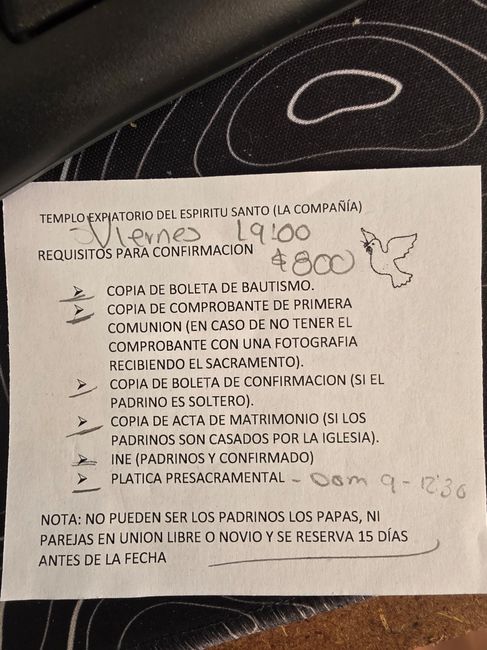 TEMPLO EXPIATORIO DEL ESPIRITU SANTO (LA COMPAÑÍA)
Viernes 19:00
REQUISITOS PARA CONFIRMACION
$800
COPIA DE BOLETA DE BAUTISMO.
COPIA DE COMPROBANTE DE PRIMERA
COMUNION (EN CASO DE NO TENER EL
COMPROBANTE CON UNA FOTOGRAFIA
RECIBIENDO EL SACRAMENTO).
COPIA DE BOLETA DE CONFIRMACION (SI EL
PADRINO ES SOLTERO).
COPIA DE ACTA DE MATRIMONIO (SI LOS
PADRINOS SON CASADOS POR LA IGLESIA).
INE (PADRINOS Y CONFIRMADO)
PLATICA PRESACRAMENTAL - Dom 9 - 12:30
NOTA: NO PUEDEN SER LOS PADRINOS LOS PAPAS, NI
PAREJAS EN UNION LIBRE O NOVIO Y SE RESERVA 15 DÍAS
ANTES DE LA FECHA